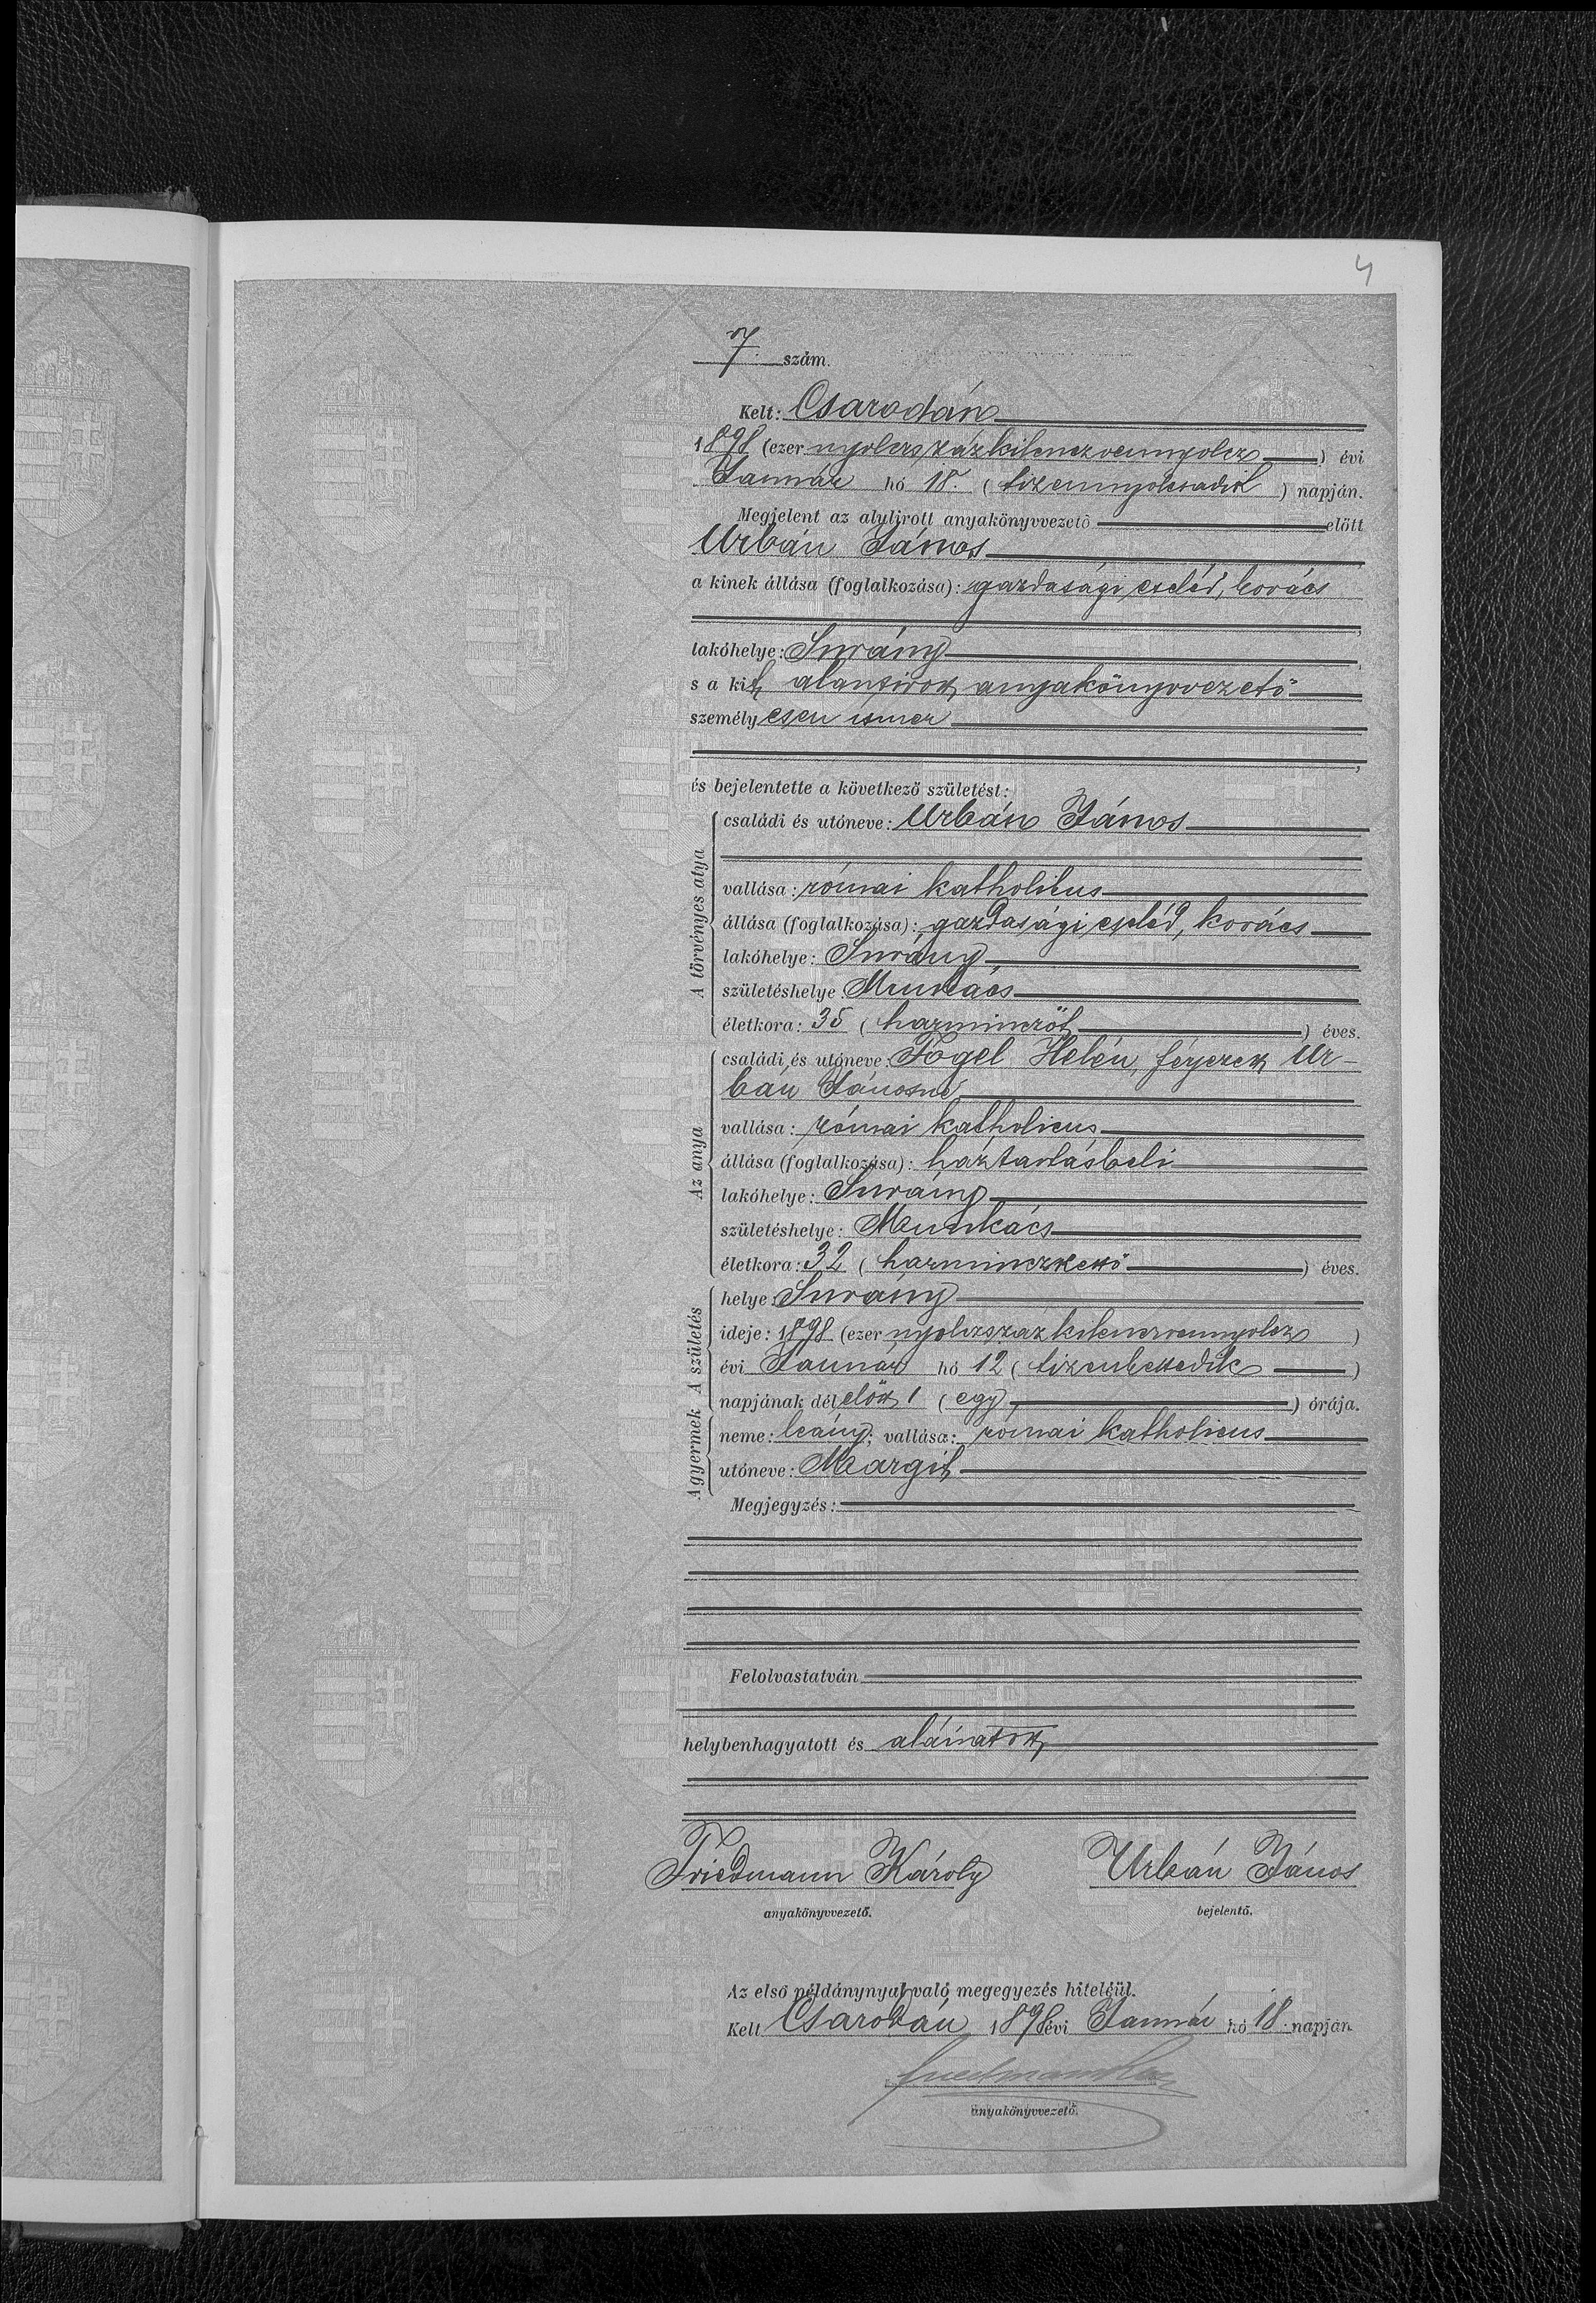 4
7. szám.
Kelt: Csarodán
1898 (ezer nyolczszázkilenczvennyolcz) évi
Január hó 18. (tizennyolczadik) napján.
Megjelent az alulirott anyakönyvvezető előtt
Urbán János
a kinek állása (foglalkozása): gazdasági cseléd, kovács
lakóhelye: Surány
s a kit alantirott anyakönyvvezető
személyesen ismer
és bejelentette a következő születést:
A törvényes atya
családi és utóneve: Urbán János
vallása: római katholikus
állása (foglalkozása): gazdasági cseléd, kovács
lakóhelye: Surány
születéshelye: Munkács
életkora: 35 (harminczöt) éves.
Az anya
családi és utóneve: Fogel Helén, férjezett Ur-
bán Jánosné
vallása: római katholicus
állása (foglalkozása): háztartásbeli
lakóhelye: Surány
születéshelye: Munkács
életkora: 32 (harminczkettő) éves.
A születés
helye: Surány
ideje: 1898 (ezer nyolczszázkilenczvennyolcz)
évi Január hó 12 (tizenkettedik)
napjának délelőtt 1 (egy) órája.
A gyermek
neme: leány; vallása: római katholicus
utóneve: Margit
Megjegyzés:
Felolvastatván
helybenhagyatott és aláíratott,
Friedmann Károly Urbán János
anyakönyvvezető. bejelentő.
Az első példánynyal való megegyezés hiteléül.
Kelt Csarodán 1898 évi Január hó 18. napján
anyakönyvvezető.